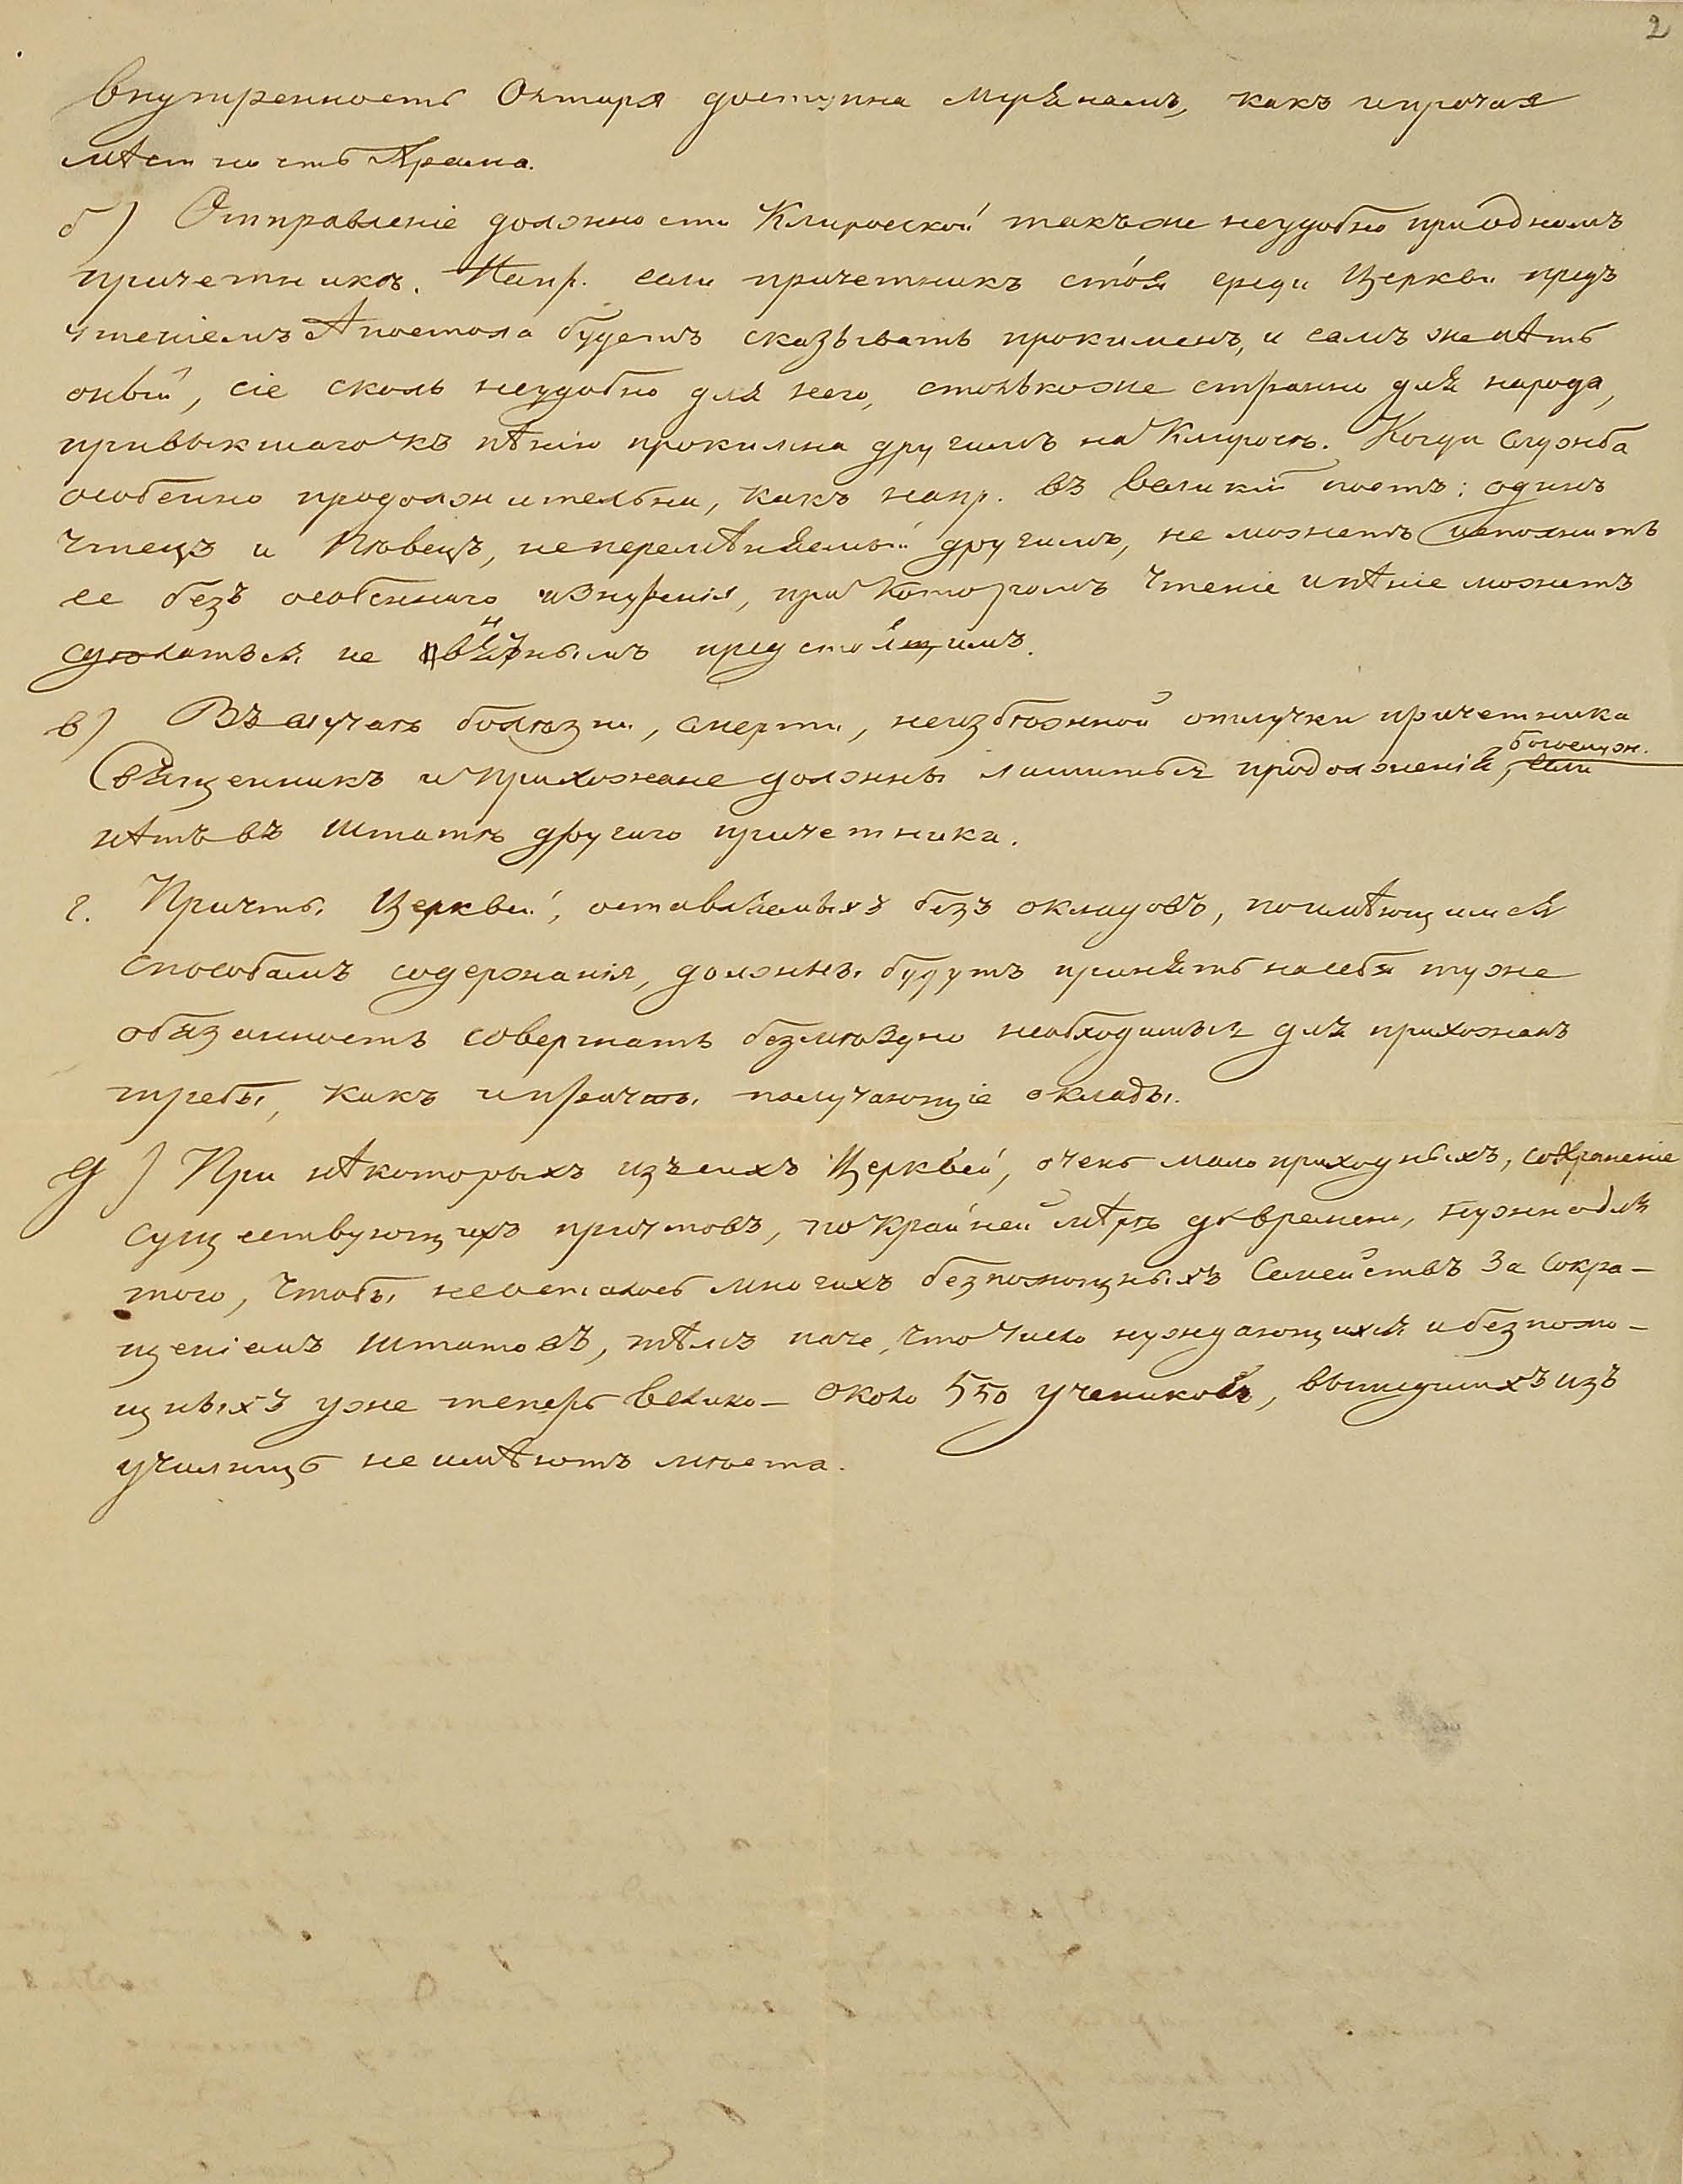 2
внутренность Олтаря доступна мирянамъ, какъ и прочая
мѣстность Храма.
б) Отправленіе должности Клироской такъ же неудобно при одномъ
причетникѣ. Напр. если причетникъ стоя среди Церкви предъ
чтеніемъ Апостола будетъ сказывать прокименъ, и самъ же пѣть
оный, сіе сколь неудобно для него, столько же странно для народа,
привыкшаго къ пѣнію прокимна другимъ на Клиросѣ. Когда служба
особенно продолжительна, какъ напр. въ великій постъ: одинъ
Чтецъ и Пѣвецъ, неперемѣняемый другимъ, не можетъ исполнить
ее безъ особеннаго изнуренія, при которомъ чтеніе и пѣніе можетъ
сдѣлаться не внятнымъ предстоящимъ.
в) Въ случаѣ болѣзни, смерти, неизбѣжной отлучки причетника
Священникъ и прихожане должны лишиться продолженія богослуж., если
нѣтъ въ штатѣ другаго причетника.
г. Причты Церквей, оставляемыхъ безъ окладовъ, по имѣющимся
способамъ содержанія, должны будутъ принять на себя туже
обязанность совершать безмѣздно необходимыя для прихожанъ
требы, какъ и причты получающіе оклады.
д) При нѣкоторыхъ изъ сихъ Церквей, очень малоприходныхъ, сохраненіе
существующихъ причтовъ, по крайней мѣрѣ до времени, нужно для
того, чтобы не осталось многихъ безпомощныхъ Семействъ за сокра-
щеніемъ штатовъ, тѣмъ паче, что число нуждающихся и безпомо-
щныхъ уже теперь велико - около 550 учениковъ, вышедшихъ изъ
училищъ не имѣютъ мѣста.